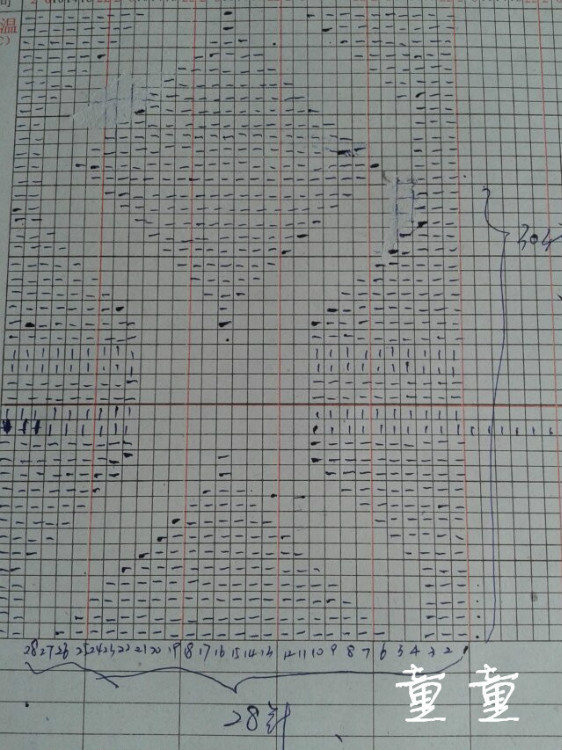 温
28 27 26 25 24 23 22 21 20 19 18 17 16 15 14 13 12 11 10 9 8 7 6 5 4 3 2 1
28针
童童